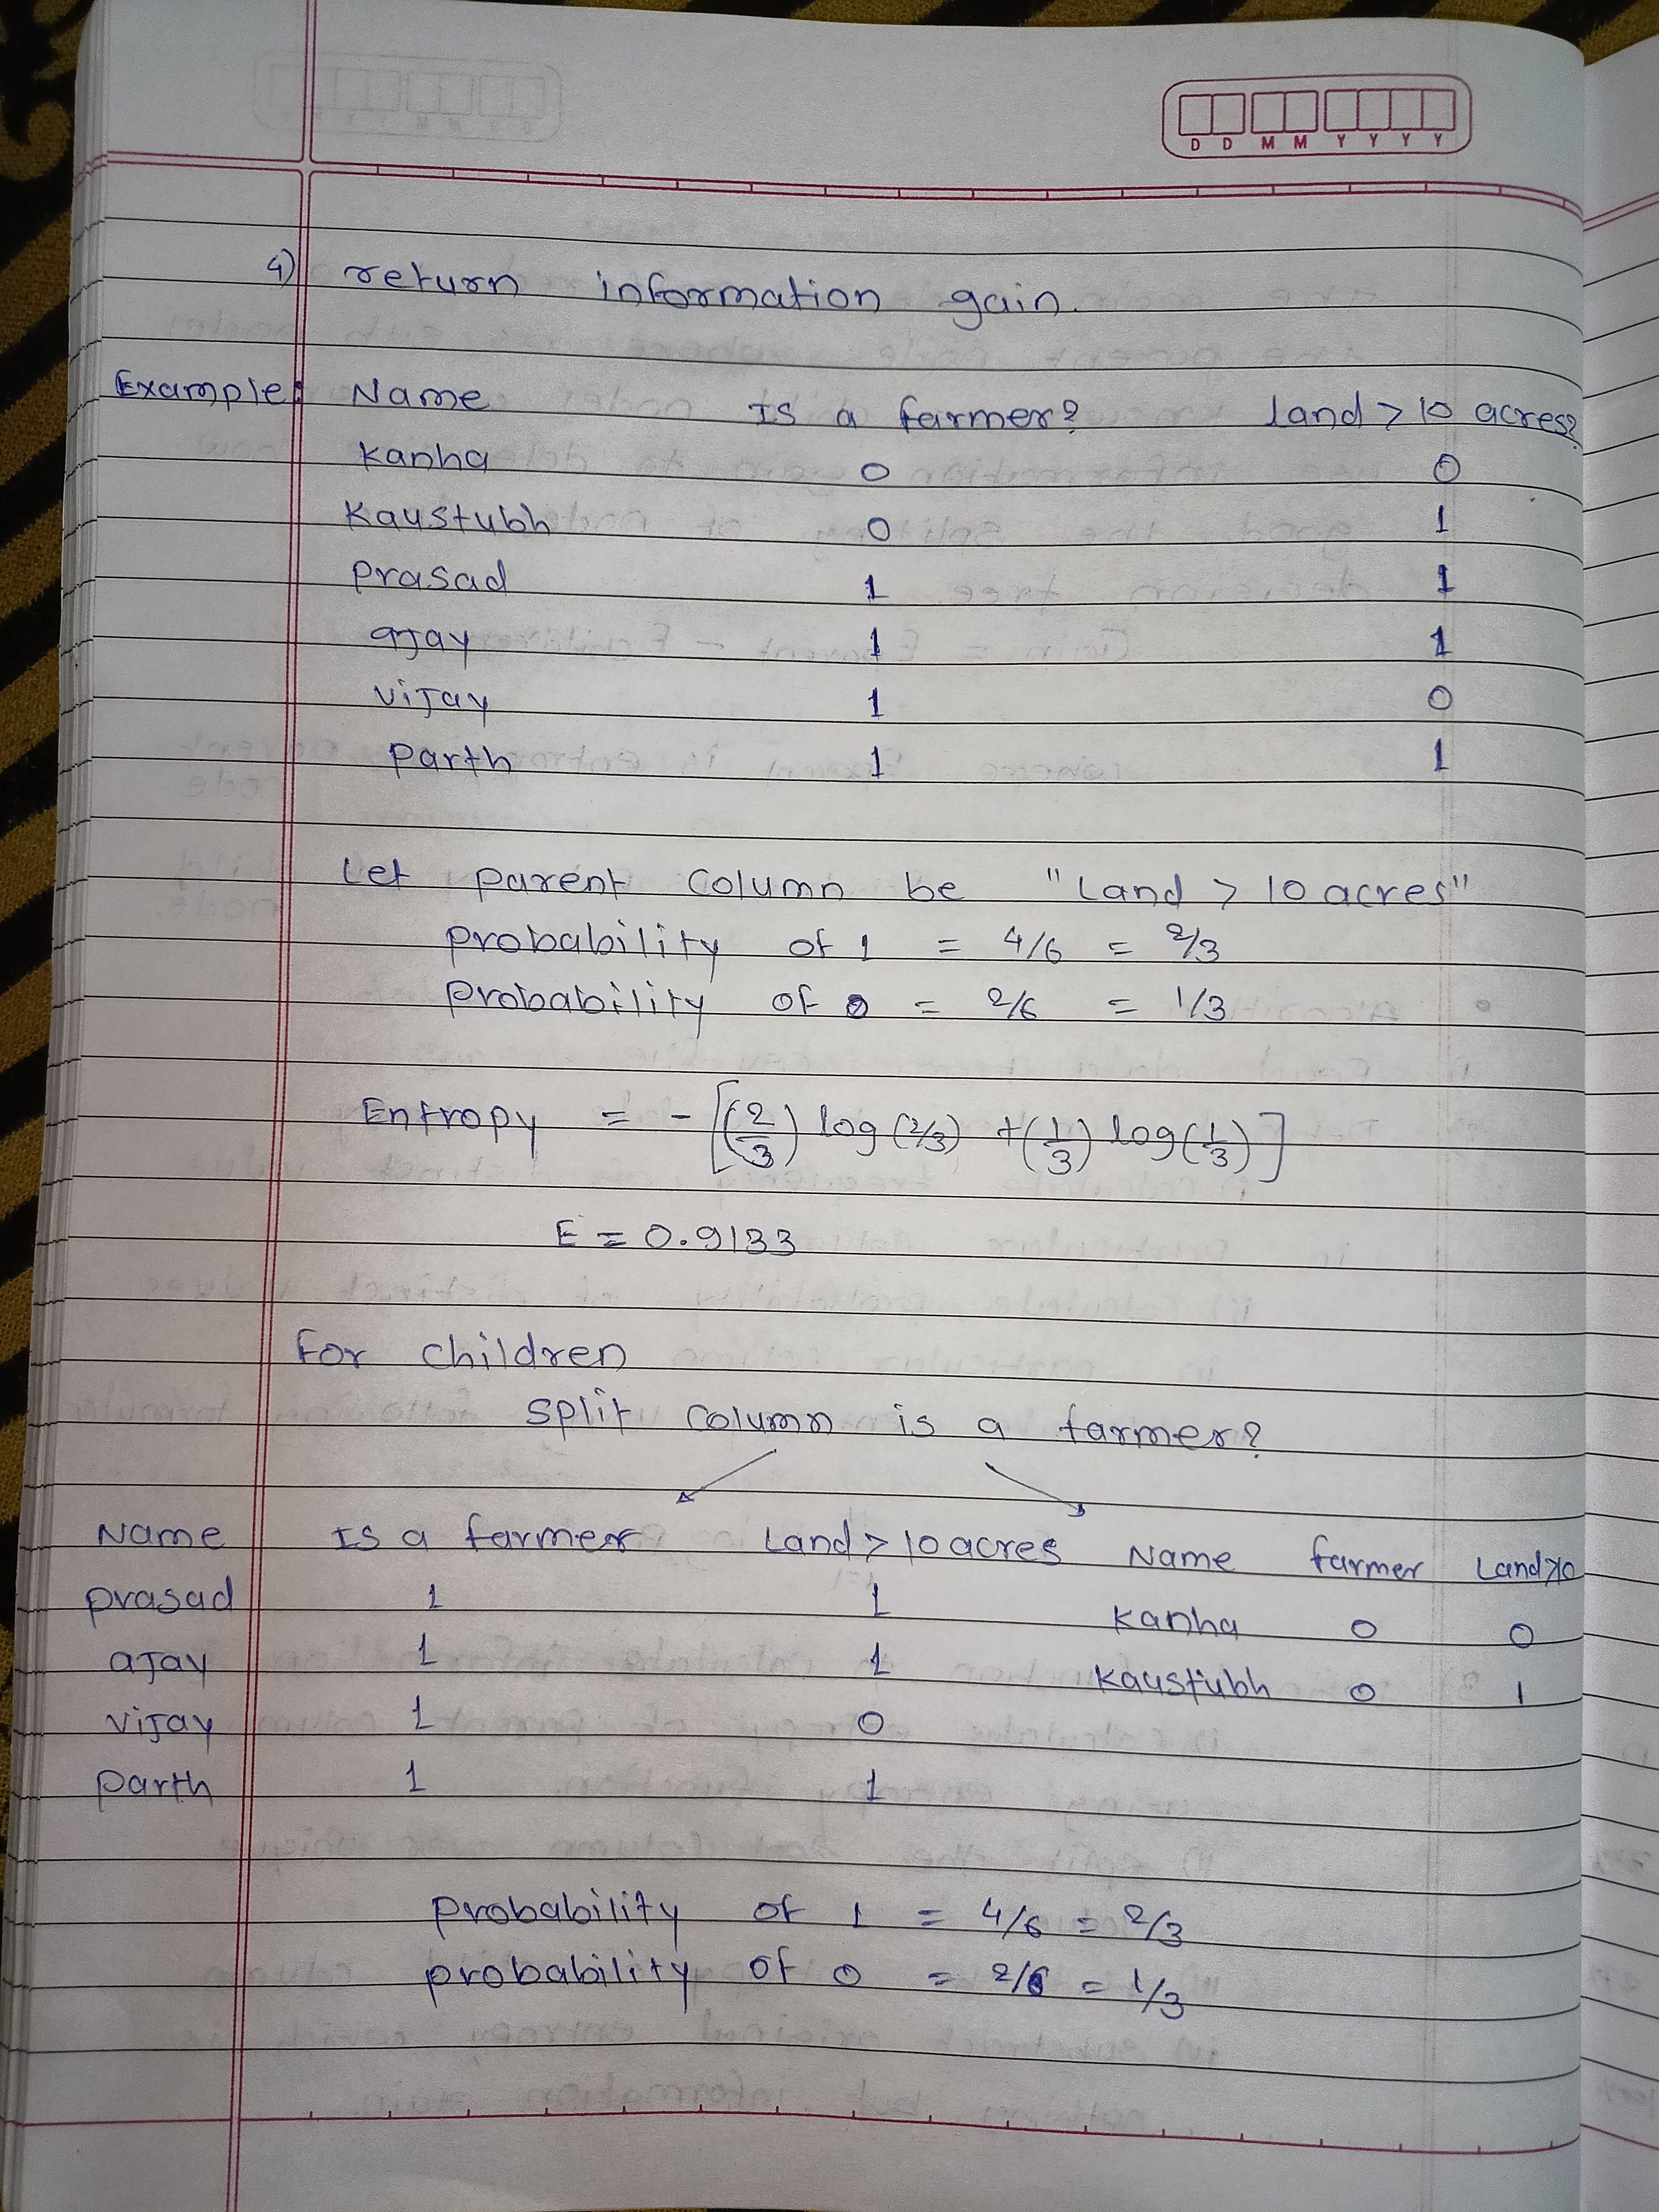 D D M M Y Y Y Y
4) return information gain.
Example: Name Is a farmer? land > 10 acres?
Kanha 0 0
Kaustubh 0 1
Prasad 1 1
ajay 1 1
vijay 1 0
Parth 1 1
Let parent column be "Land > 10 acres"
probability of 1 = 4/6 = 2/3
probability of 0 = 2/6 = 1/3
Entropy = - [(2/3) log(2/3) + (1/3) log(1/3)]
E = 0.9133
For children
split column is a farmer?
Name Is a farmer Land > 10 acres
prasad 1 1
ajay 1 1
vijay 1 0
parth 1 1
Name farmer Land>10
Kanha 0 0
Kaustubh 0 1
probability of 1 = 4/6 = 2/3
probability of 0 = 2/6 = 1/3